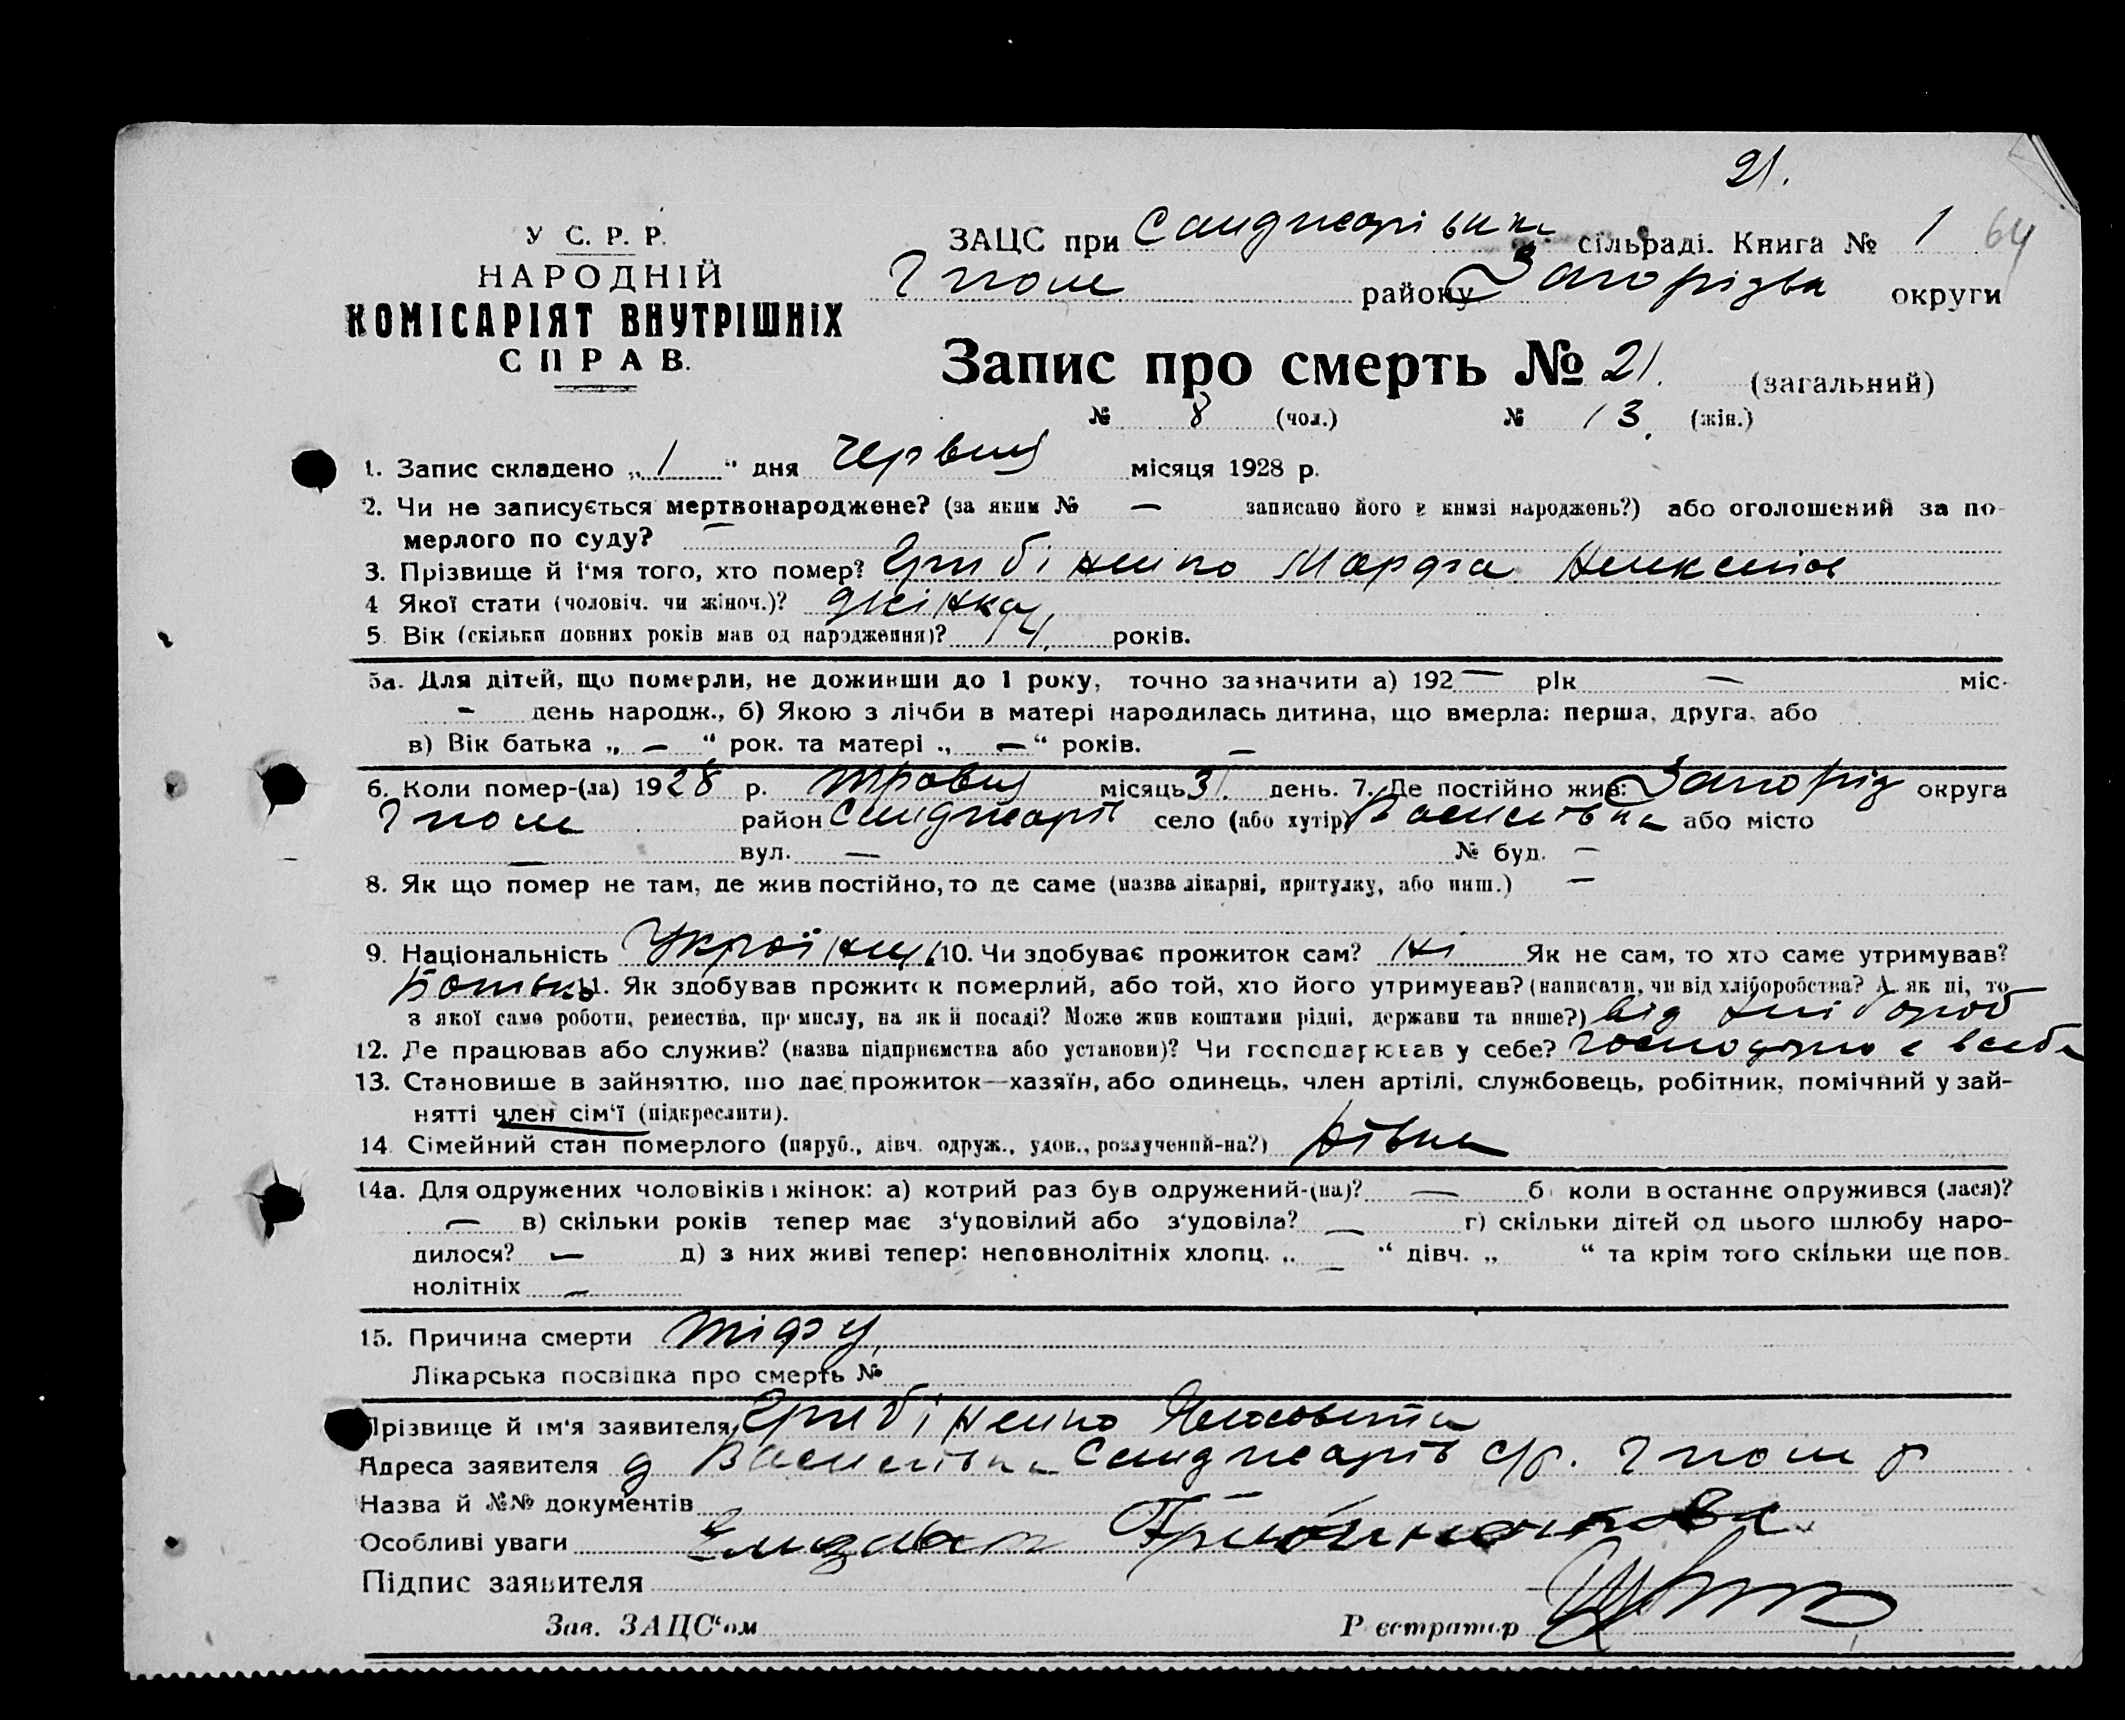 21.
У С. Р. Р.
НАРОДНІЙ
КОМІСАРІЯТ ВНУТРІШНІХ
СПРАВ.
ЗАЦС при сільраді. Книга № 1 64
Гпол району Запорізьк округи
Запис про смерть № 21. (загальний)
№ 8 (чол.) № 13. (жін.)
1. Запис складено „ 1 “ дня червня місяця 1928 р.
2. Чи не записується мертвонароджене? (за яким № — записано його в книзі народжень?) або оголошений за по-
мерлого по суду? —
3. Прізвище й і'мя того, хто помер? Грибіненко Марфа
4 Якої стати (чоловіч. чи жіноч.)? жінка
5. Вік (скільки повних років мав од народження)? 14, років.
5а. Для дітей, що померли, не доживши до 1 року, точно зазначити а) 192 — рік — міс.
- день народж., б) Якою з лічби в матері народилась дитина, що вмерла: перша, друга, або
в) Вік батька „ — “ рок. та матері „ — “ років. —
6. Коли помер-(ла) 1928 р. травня місяць 31. день. 7. Де постійно жив: Запоріз округа
Гпол район Санджарів село (або хутір) Василівка або місто
— вул. — № буд. —
8. Як що помер не там, де жив постійно, то де саме (назва лікарні, притулку, або инш.) —
9. Національність Українц. 10. Чи здобуває прожиток сам? Ні Як не сам, то хто саме утримував?
Батько 11. Як здобував прожиток померлий, або той, хто його утримував? (написати, чи від хліборобства? А як ні, то
з якої саме роботи, ремества, промислу, на якій посаді? Може жив коштами рідні, держави та инше?) від хлібороб
12. Де працював або служив? (назва підприємства або установи)? Чи господарював у себе? господарює в себе
13. Становище в зайняттю, що дає прожиток—хазяїн, або одинець, член артілі, службовець, робітник, помічний у зай-
нятті член сім'ї (підкреслити).
14. Сімейний стан померлого (паруб., дівч. одруж., удов., розлучений-на?) дівка
14а. Для одружених чоловіків і жінок: а) котрий раз був одружений-(на)? — б) коли в останнє одружився (лася)?
— в) скільки років тепер має з'удовілий або з'удовіла? — г) скільки дітей од цього шлюбу наро-
дилося? — д) з них живі тепер: неповнолітніх хлопц. „ — “ дівч. „ “ та крім того скільки ще пов.
нолітніх —
15. Причина смерти тіфу
Лікарська посвідка про смерть №
Прізвище й ім'я заявителя Грибіненко
Адреса заявителя д Василівка Санджарів с/р. Гпол р
Назва й №№ документів
Особливі уваги
Підпис заявителя
Зав. ЗАЦС'ом Реєстратор